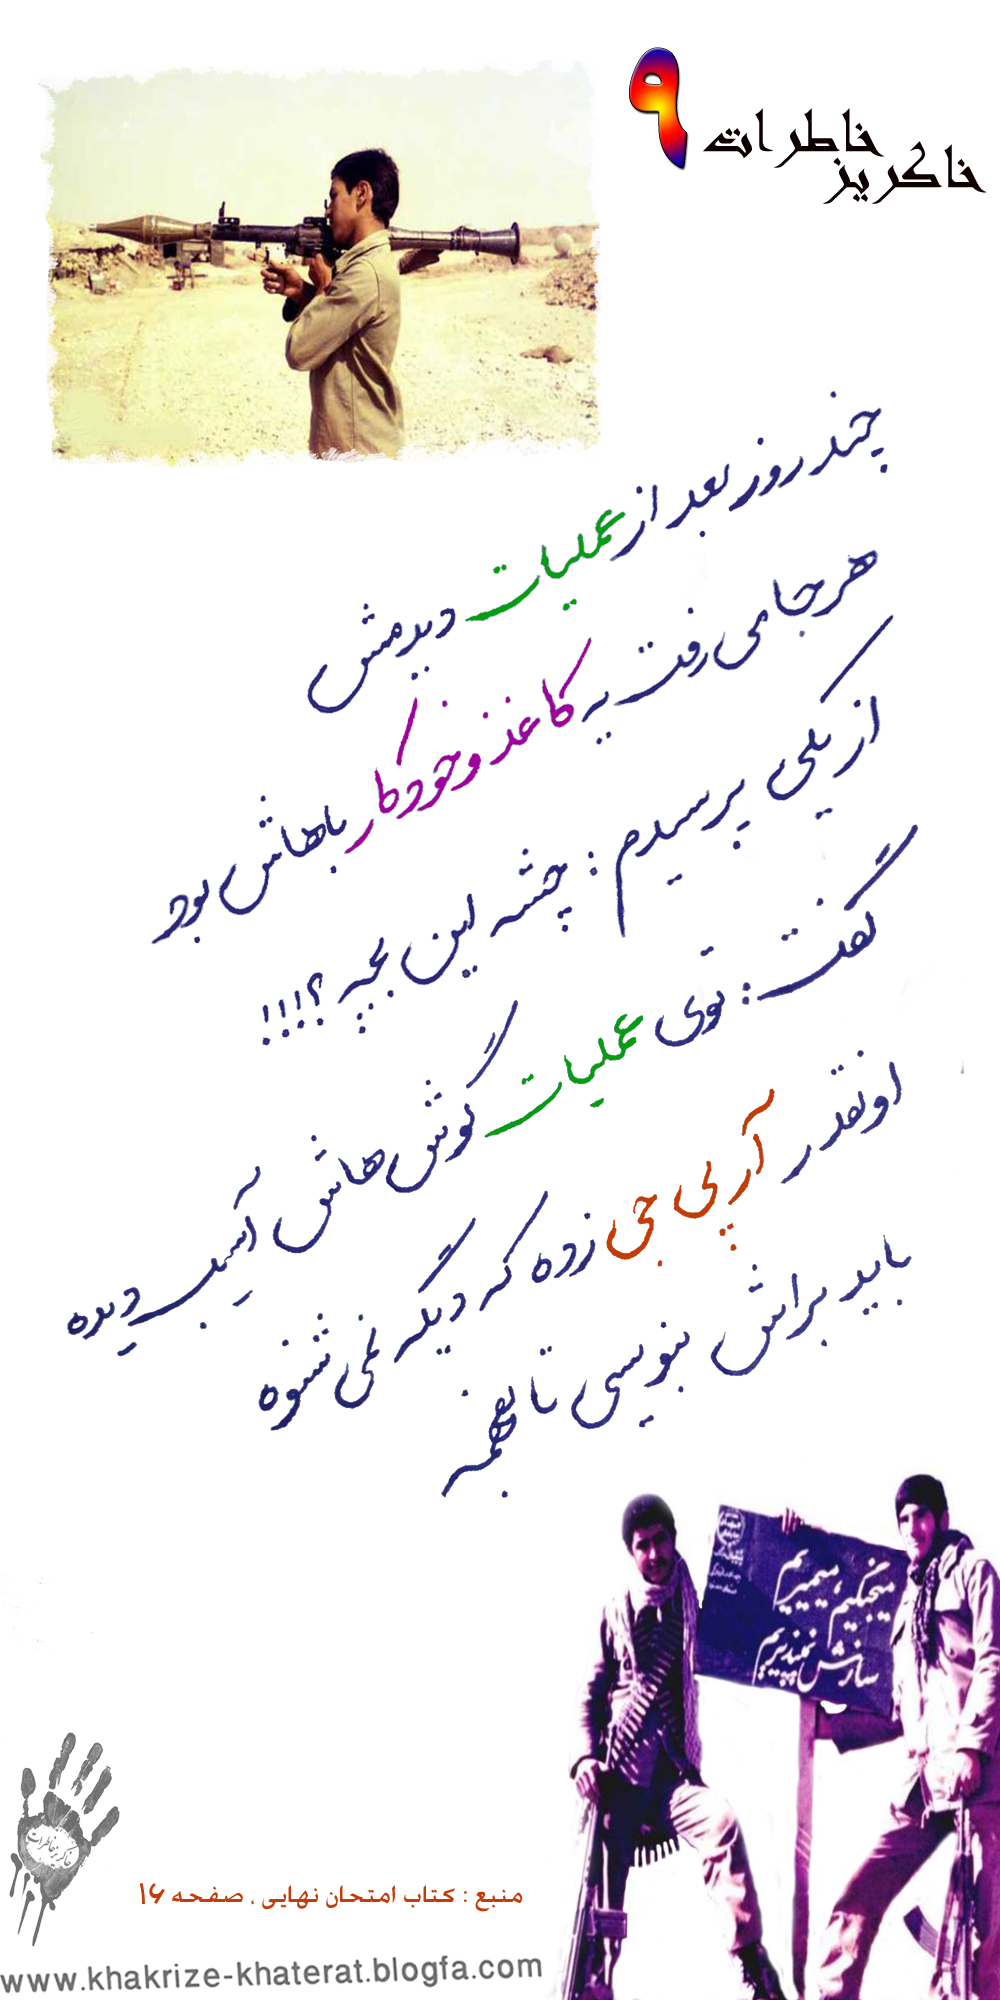 خاکریز خاطرات ۹
چند روز بعد از عملیات دیدمش
هر جا می رفت یه کاغذ و خودکار باهاش بود
از یکی پرسیدم : چشه این بچه ؟!!!!
گفت : توی عملیات گوش هاش آسیب دیده
اونقدر آرپی جی زده که دیگه نمی شنوه
باید براش بنویسی تا بفهمه
میجنگیم میمیریم
سازش نمیپذیریم
خاکریز خاطرات
منبع : کتاب امتحان نهایی ، صفحه ۱۶
www.khakrize-khaterat.blogfa.com